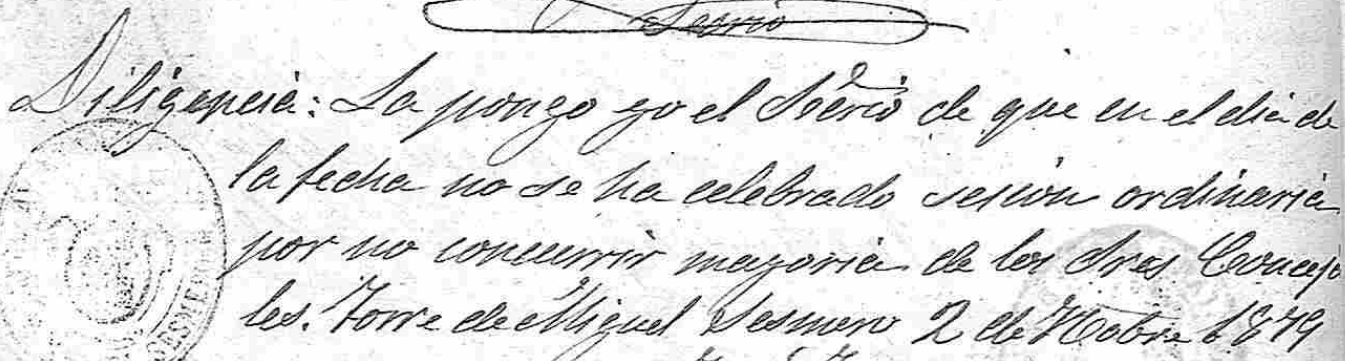 Secrio
Diligencia: La pongo yo el Srerio de que en el dia de
la fecha no se ha celebrado sesion ordinaria
por no concurrir mayoria de los Sres Conceja
les. Torre de Miguel Sesmero 2 de Nobre 1879
SESMERO